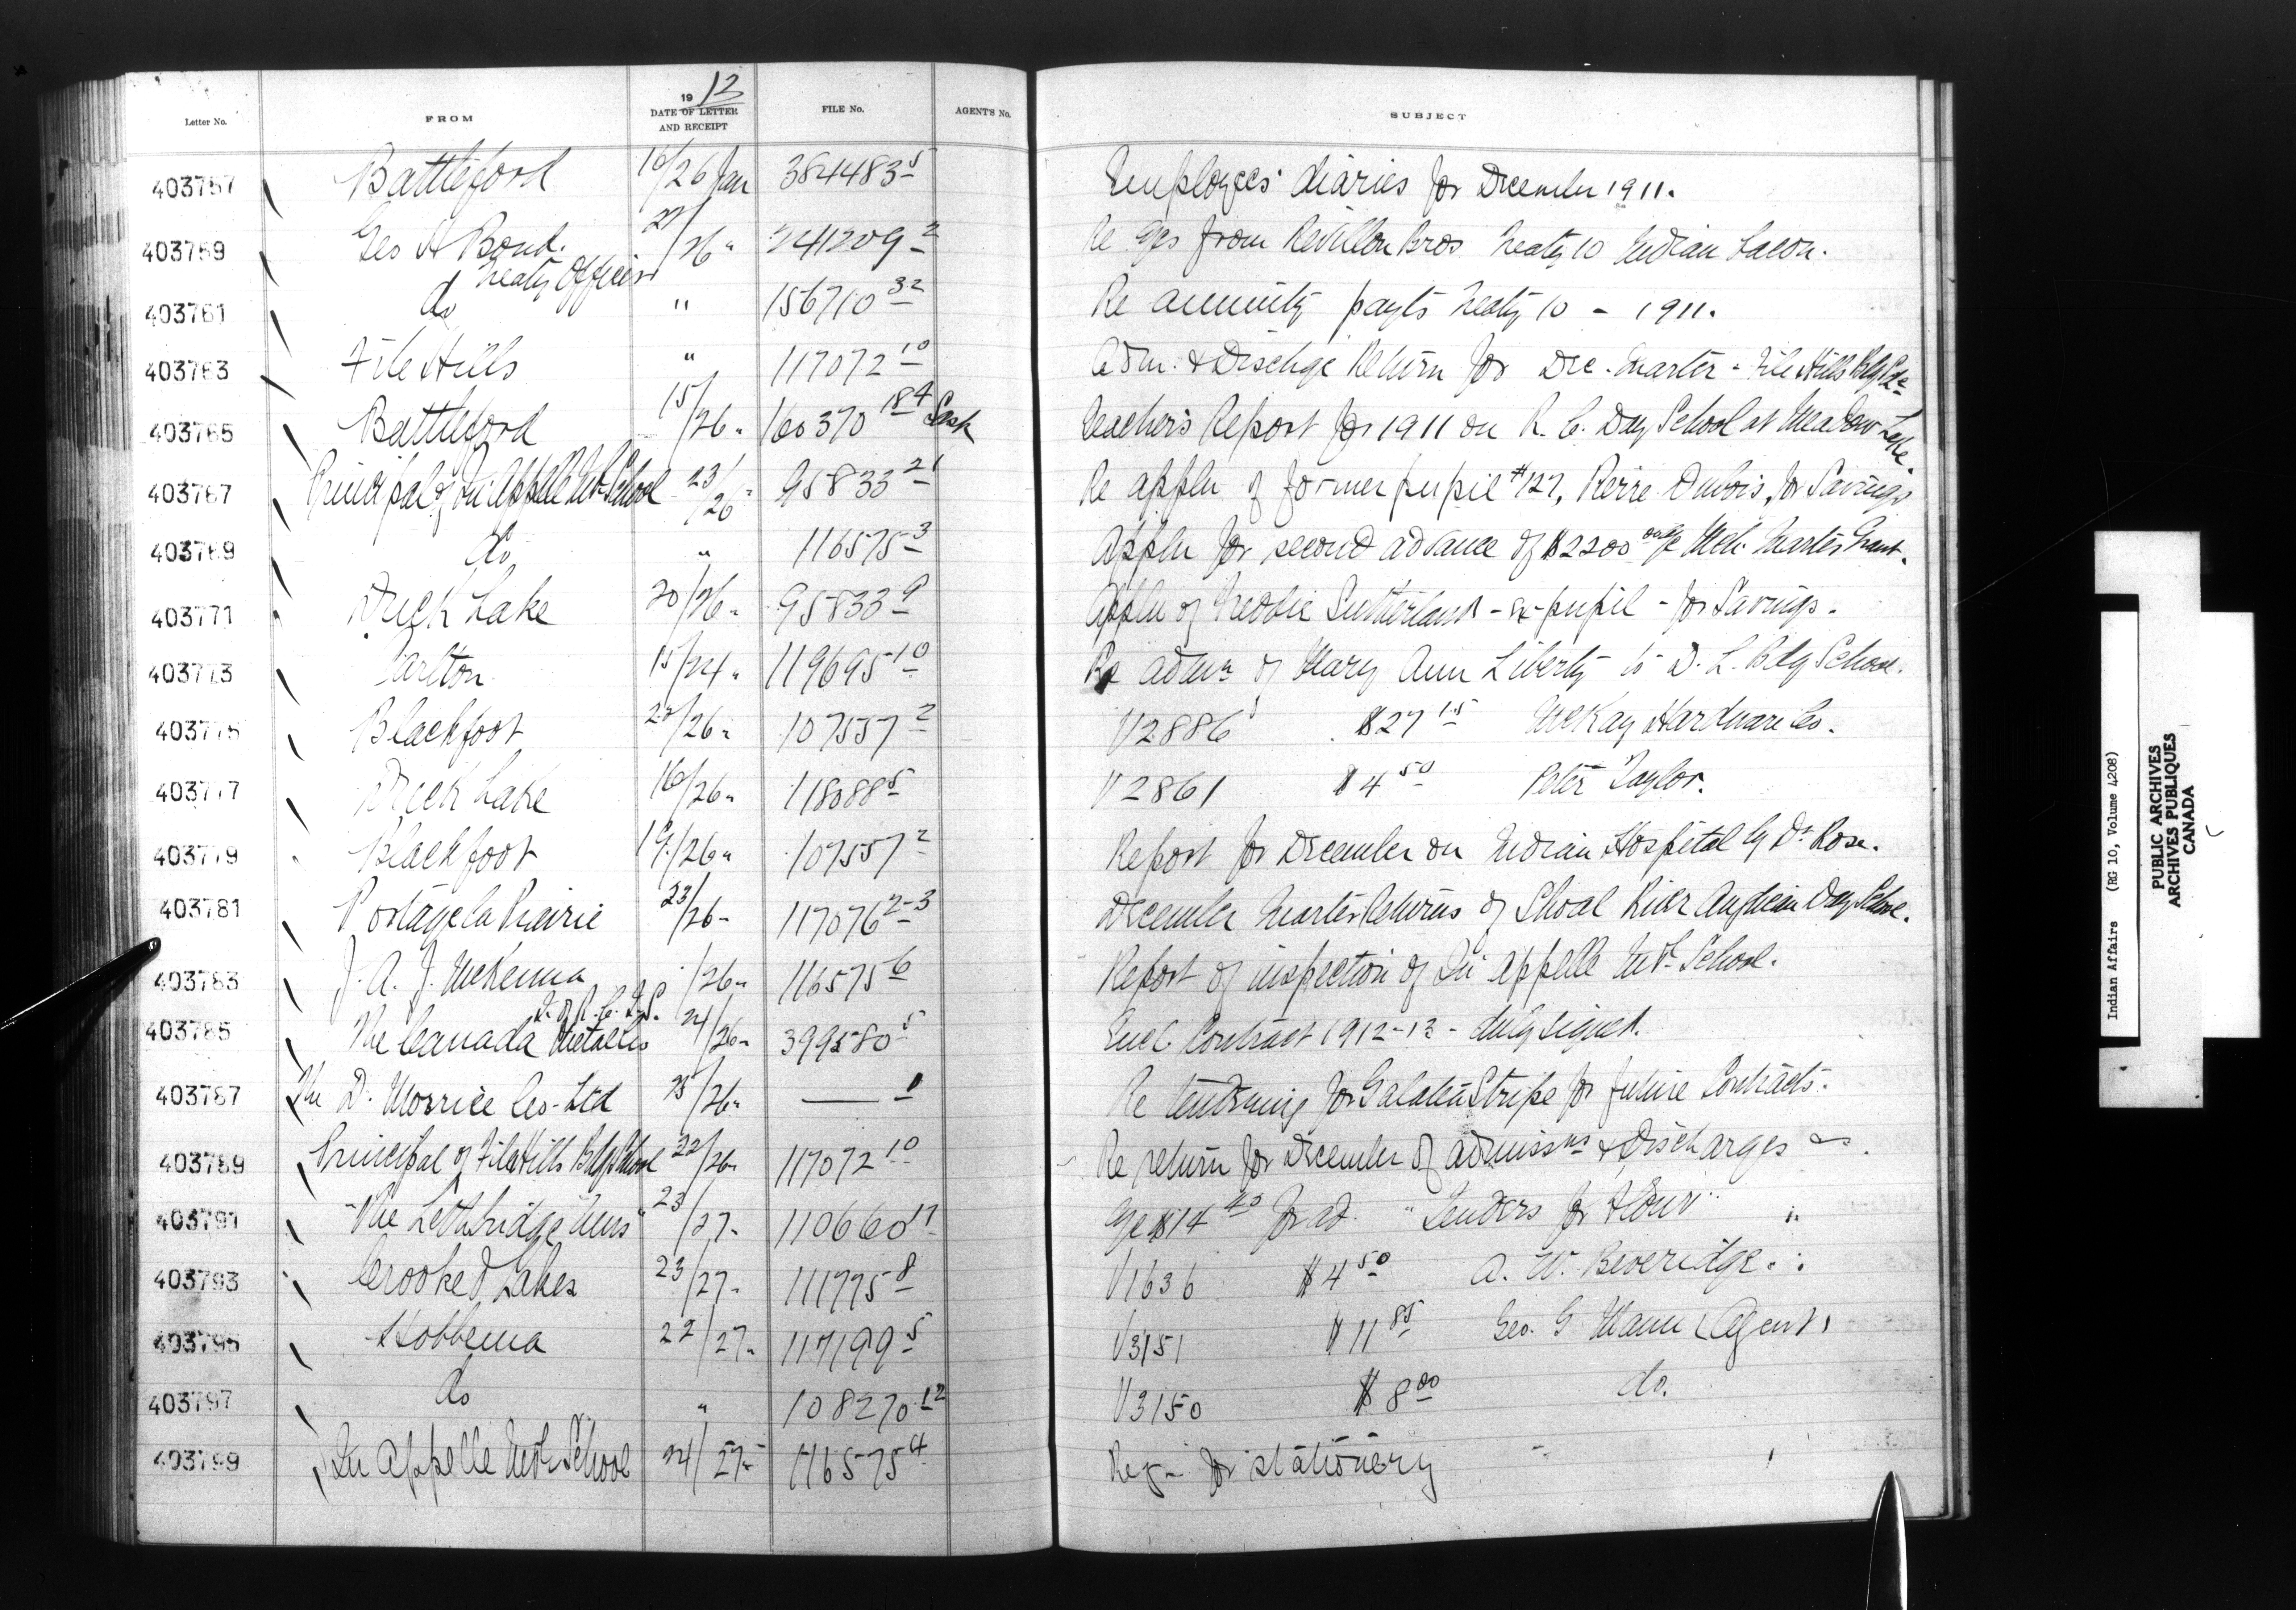 Letter No. FROM 1912 DATE OF LETTER AND RECEIPT FILE No. AGENT'S No. SUBJECT
403757 Battleford 16/26 Jan 384483 5 Employees' diaries for December 1911.
403759 Geo A Bond. Treaty Officer 27/26 " 241209 2 Re a/cs from Revillon Bros Treaty 10 Indian
403761 do " 156710 32 Re annuity payts Treaty 10 - 1911.
403763 File Hills " 117072 10 Adm. & Dischge Return for Dec. Quarter - File Hills Bdg Sch
403765 Battleford 15/26 " 160370 184 Sask Teacher's Report for 1911 on R. C. Day School at Meadow Lake.
403767 Principal of Qu'Appelle Ind. School 23/26 " 95833 21 Re appln of former pupil #127, Pierre Dubois, for Savings
403769 do " 116575 3 Appln for second advance of $2200 on a/c Mch. Quarter Grant.
403771 Duck Lake 20/26 " 95833 9 Appln of Freddie Sutherland - ex-pupil - for Savings.
403773 Carlton 15/24 " 119695 10 Re admn of Mary Ann Liberty to D. L. Bdg School.
403775 Blackfoot 22/26 " 107557 2 V2886 $27 15 McKay Hardware Co.
403777 Duck Lake 16/26 " 118088 5 V2861 $4 50 Peter Taylor.
403779 Blackfoot 19/26 " 107557 2 Report for December on Indian Hospital by Dr Rose.
403781 Portage la Prairie 23/26 " 117076 2-3 December Quarter Returns of Shoal River Anglican Day School.
403783 J. A. J. McKenna I. of R. C. I. S. /26 " 116575 6 Report of inspection of Qu'Appelle Ind. School.
403785 The Canada Metal Co 24/26 " 399580 5 Encl. Contract 1912-13 - duly signed.
403787 The D. Morrice Co. Ltd 25/26 " — 1 Re tendering for Galatea Stripe for future Contracts.
403789 Principal of File Hills Bdg School 22/26 " 117072 10 Re return for December of admissns & Discharges
403791 "The Lethbridge News" 23/27 " 110660 17 A/c $14 40 for ad. "Tenders for Flour"
403793 Crooked Lakes 23/27 " 111775 8 V1636 $4 50 A. W. Beveridge.
403795 Hobbema 22/27 " 117199 5 V3151 $11 85 Geo. G Mann (Agent)
403797 do " 108270 12 V3150 $8 00 do.
403799 Qu'Appelle Ind. School 24/27 " 116575 4 Reqn for stationery
Indian Affairs (RG 10, Volume 4208)
PUBLIC ARCHIVES
ARCHIVES PUBLIQUES
CANADA